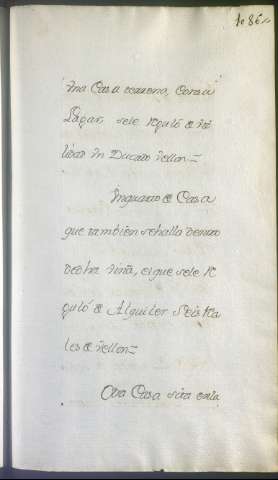 1086
una Casa terrena, con su
Lagar, sele reguló de Uti
lidad un Ducado Vellon=
Un quarto de Casa
que tambien sehalla dentro
dedha viña, el que sele re
guló de Alquiler Seis Rea
les de Vellon=
Otra Casa sita enla